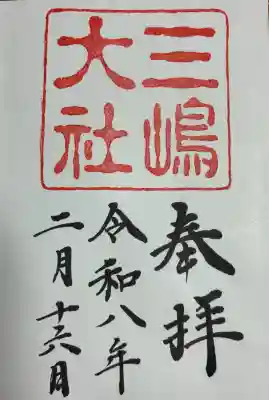 三嶋
大社
奉拝
令和八年
二月十六日